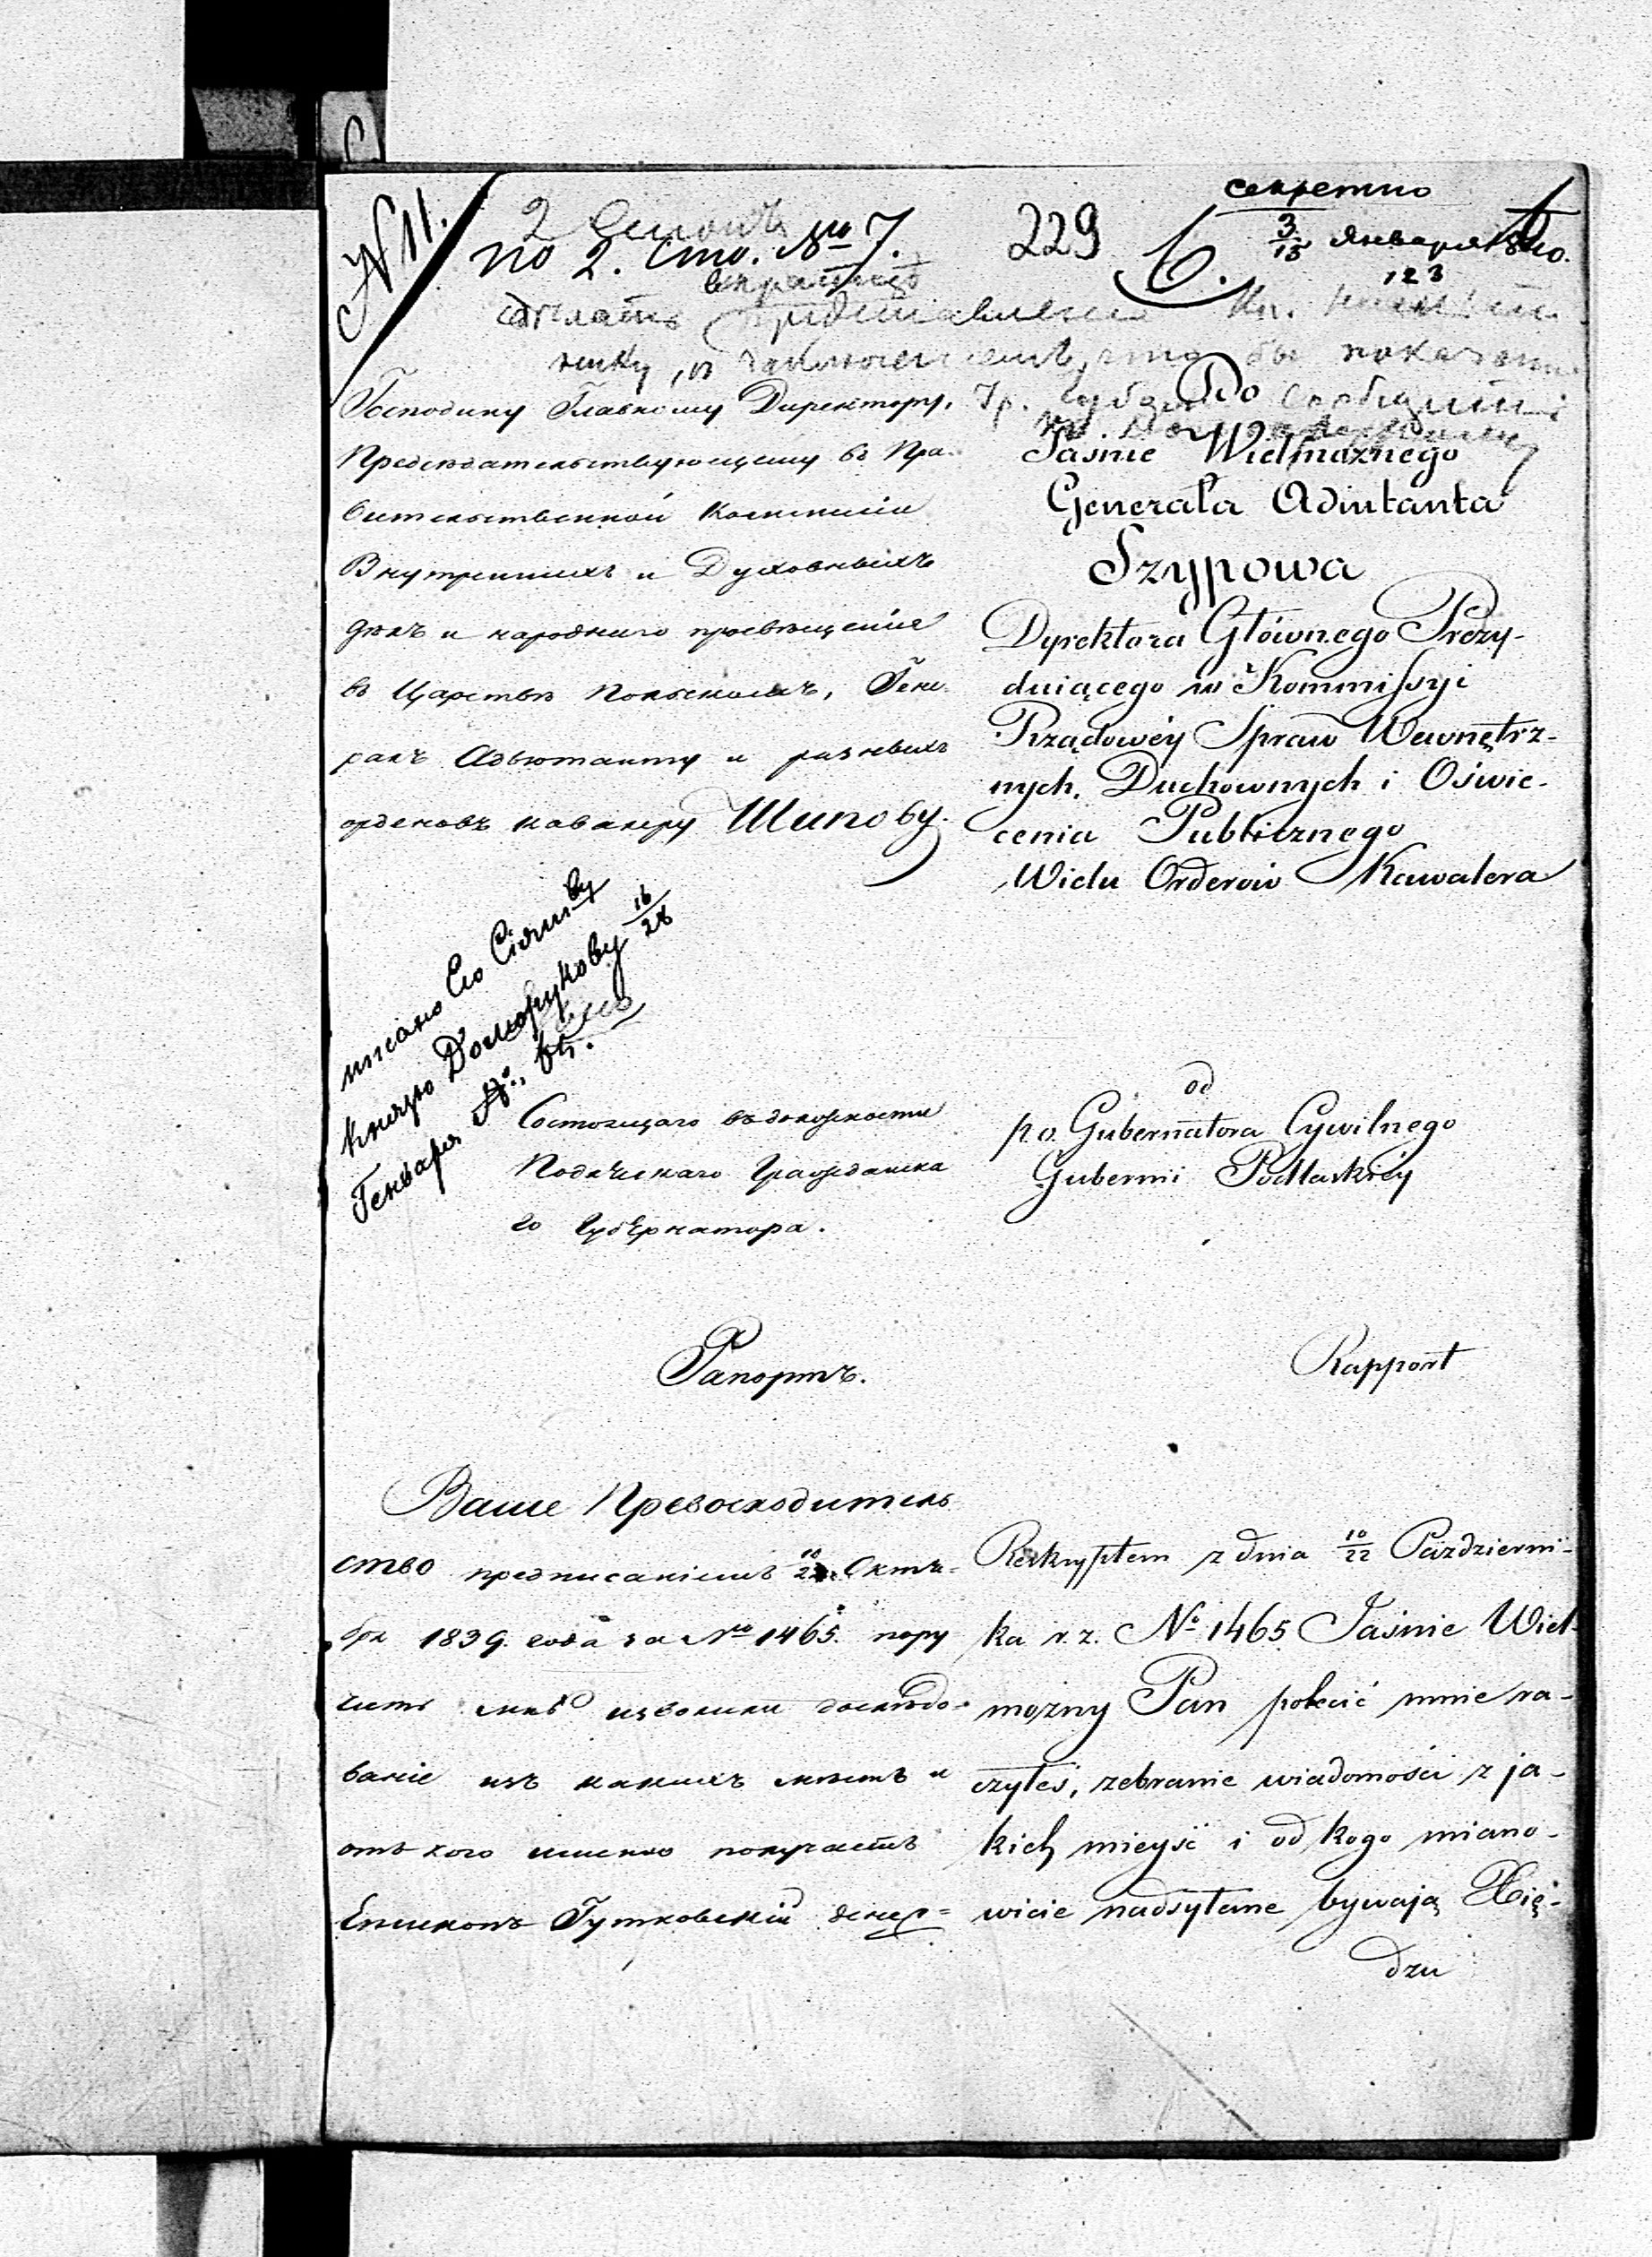 № 11.
по 2. сто. № 7.
229
секретно
3/15 Января 1840.
123
вкратцѣ
сдѣлать представленіе Кн.
нику, и
Господину Главному Директору,
Предсѣдательствующему въ Пра-
вительственной Коммисіи
Внутреннихъ и Духовныхъ
дѣлъ и народнаго просвѣщенія
въ Царствѣ Польскомъ, Гене-
ралъ Адъютанту и разныхъ
орденовъ кавалеру Шипову.
Do
Jaśnie Wielmożnego
Generała Adiutanta
Szypowa
Dyrektora Głównego Prezy-
duiącego w Kommissyi
Rządowéy Spraw Wewnętrz-
nych, Duchownych i Oświe-
cenia Publicznego
Wielu Orderów Kawalera
писано Его Сіят.ву
князю Долгорукову 16/28
Генваря №.
Состоящаго въ должности
Подляскаго Гражданска
го Губернатора.
od
p.o. Gubernatora Cywilnego
Gubernii Podlaskiéy
Рапортъ.
Rapport
Ваше Превосходитель
ство предписаніемъ 10/22 Октя-
бря 1839. года за № 1465. пору
чить мнѣ изволили дослѣдо-
ваніе изъ какихъ мѣстъ и
отъ кого именно получаетъ
Епископъ Гутковскій денеж=
Reskryptem z dnia 10/22 Październi-
ka r.z. № 1465 Jaśnie Wiel-
możny Pan polecić mnie ra-
czyłeś, zebranie wiadomości z ja-
kich mieysć i od kogo miano-
wicie nadsyłane bywają Xię-
dzu